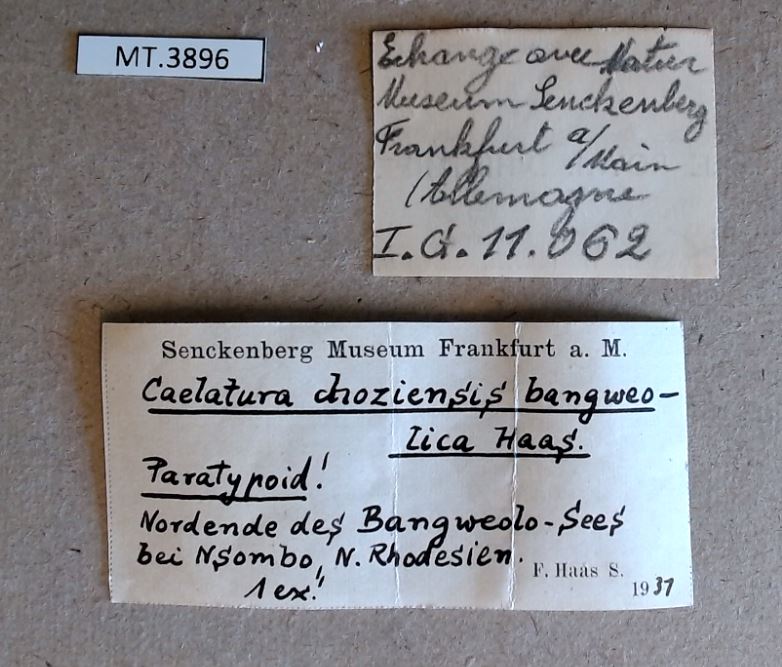 MT.3896
Echange avec Natur
Museum Senckenberg
Frankfurt a/Main
(Allemagne
I.G.11.062
Senckenberg Museum Frankfurt a. M.
Caelatura choziensis bangweo-
lica Haas.
Paratypoid!
Nordende des Bangweolo-Sees
bei Nsombo, N. Rhodesien.
F. Haas S.
1 ex.!
1931